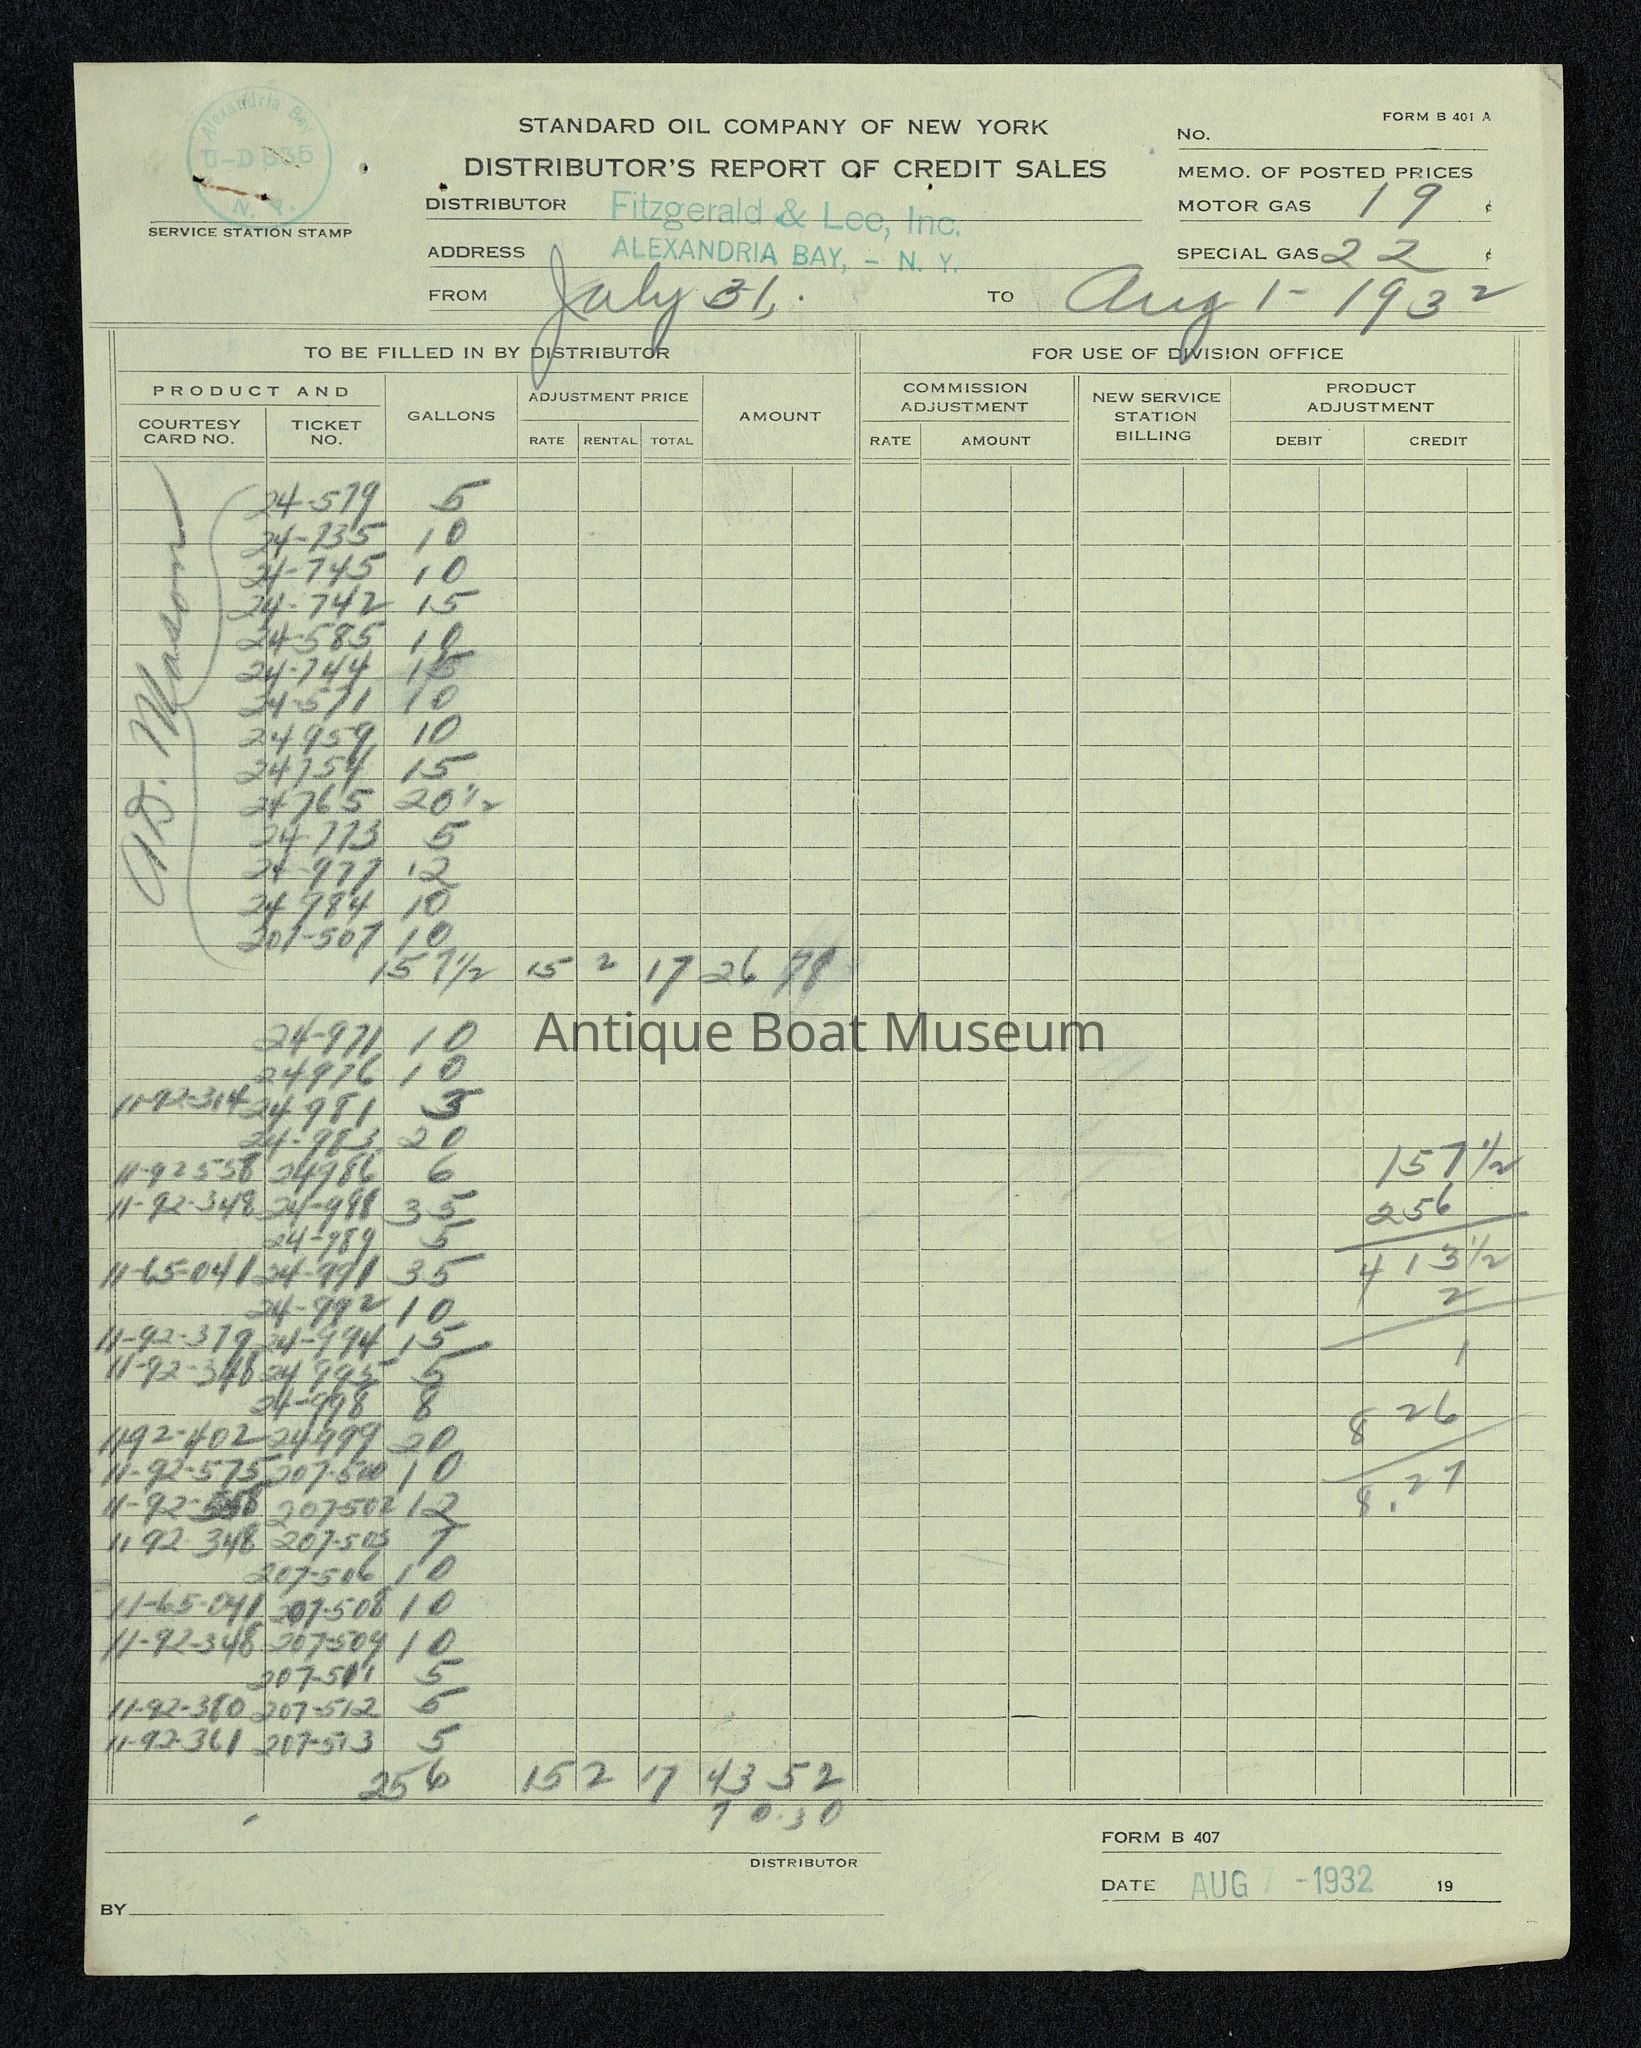 Alexandria Bay
U-D 835
N. Y.
SERVICE STATION STAMP
STANDARD OIL COMPANY OF NEW YORK
DISTRIBUTOR'S REPORT OF CREDIT SALES
DISTRIBUTOR Fitzgerald & Lee, Inc.
ADDRESS ALEXANDRIA BAY, - N. Y.
FROM July 31, TO Aug 1-1932
FORM B 401 A
NO.
MEMO. OF POSTED PRICES
MOTOR GAS 19 ¢
SPECIAL GAS 22 ¢
TO BE FILLED IN BY DISTRIBUTOR FOR USE OF DIVISION OFFICE
PRODUCT AND
COURTESY CARD NO. TICKET NO. GALLONS ADJUSTMENT PRICE RATE RENTAL TOTAL AMOUNT
COMMISSION ADJUSTMENT RATE AMOUNT NEW SERVICE STATION BILLING PRODUCT ADJUSTMENT DEBIT CREDIT
Mason
24-579 5
24-735 10
24-745 10
24-742 15
24-585 10
24-744 15
24-571 10
24959 10
24754 15
24765 20 1/2
24-773 5
24-977 12
24784 10
207-507 10
157 1/2 15 2 17 26 78
Antique Boat Museum
24-971 10
24976 10
11-92-314 24981 3
24-983 20
11-92558 24986 6
11-92-348 24-988 35
24-989 5
11-65-041 24-991 35
24-992 10
11-92-379 24-994 15
11-92-348 24995 5
24-998 8
1192-402 24999 20
11-92-575 207-500 10
11-92-558 207502 12
11 92-348 207-503 7
207-506 10
11-65-041 207-508 10
11-92-348 207-509 10
207-511 5
11-92-380 207-512 5
11-92-361 207-513 5
256 15 2 17 43 52
70.30
157 1/2
256
413 1/2
2
1
8 26
8.27
DISTRIBUTOR
BY
FORM B 407
DATE AUG 7-1932 19